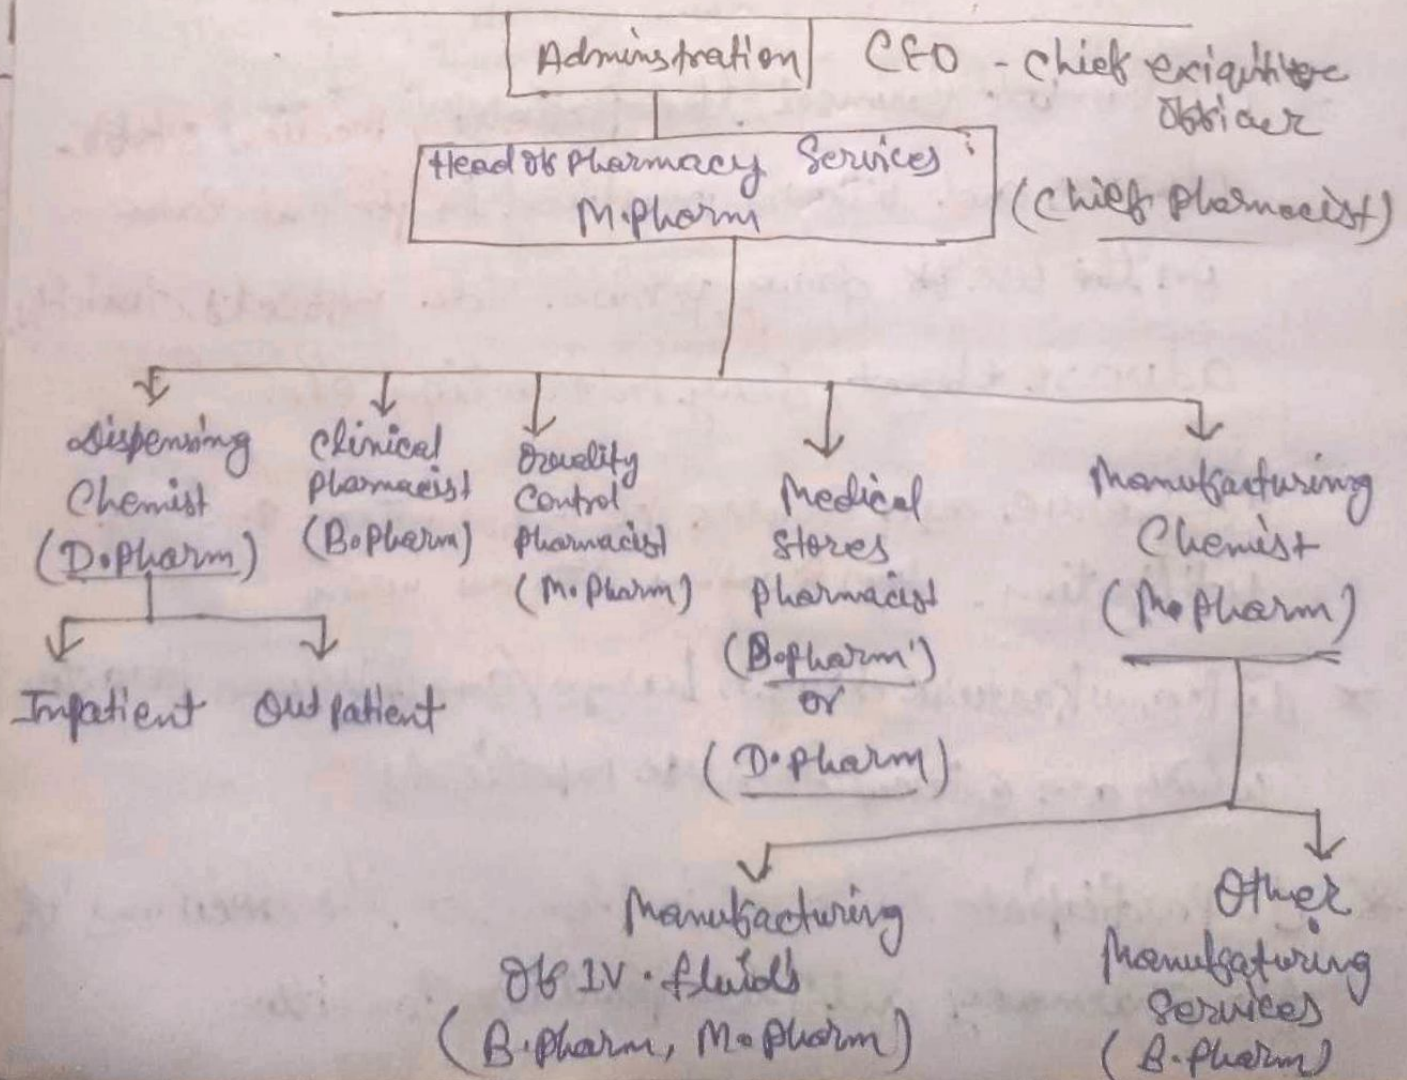 Adminstration CEO - Chief exiqitive
Officer
Head of Pharmacy Services
M.Pharm
(Chief Pharmacist)
Dispensing
Chemist
(D.Pharm)
Clinical
Pharmacist
(B.Pharm)
Quality
Control
Pharmacist
(M.Pharm)
Medical
Stores
Pharmacist
(B.Pharm)
or
(D.Pharm)
Manufacturing
Chemist
(M.Pharm)
Inpatient Outpatient
Manufacturing
Of IV. fluids
(B.Pharm, M.Pharm)
Other
Manufgaturing
Services
(B.Pharm)